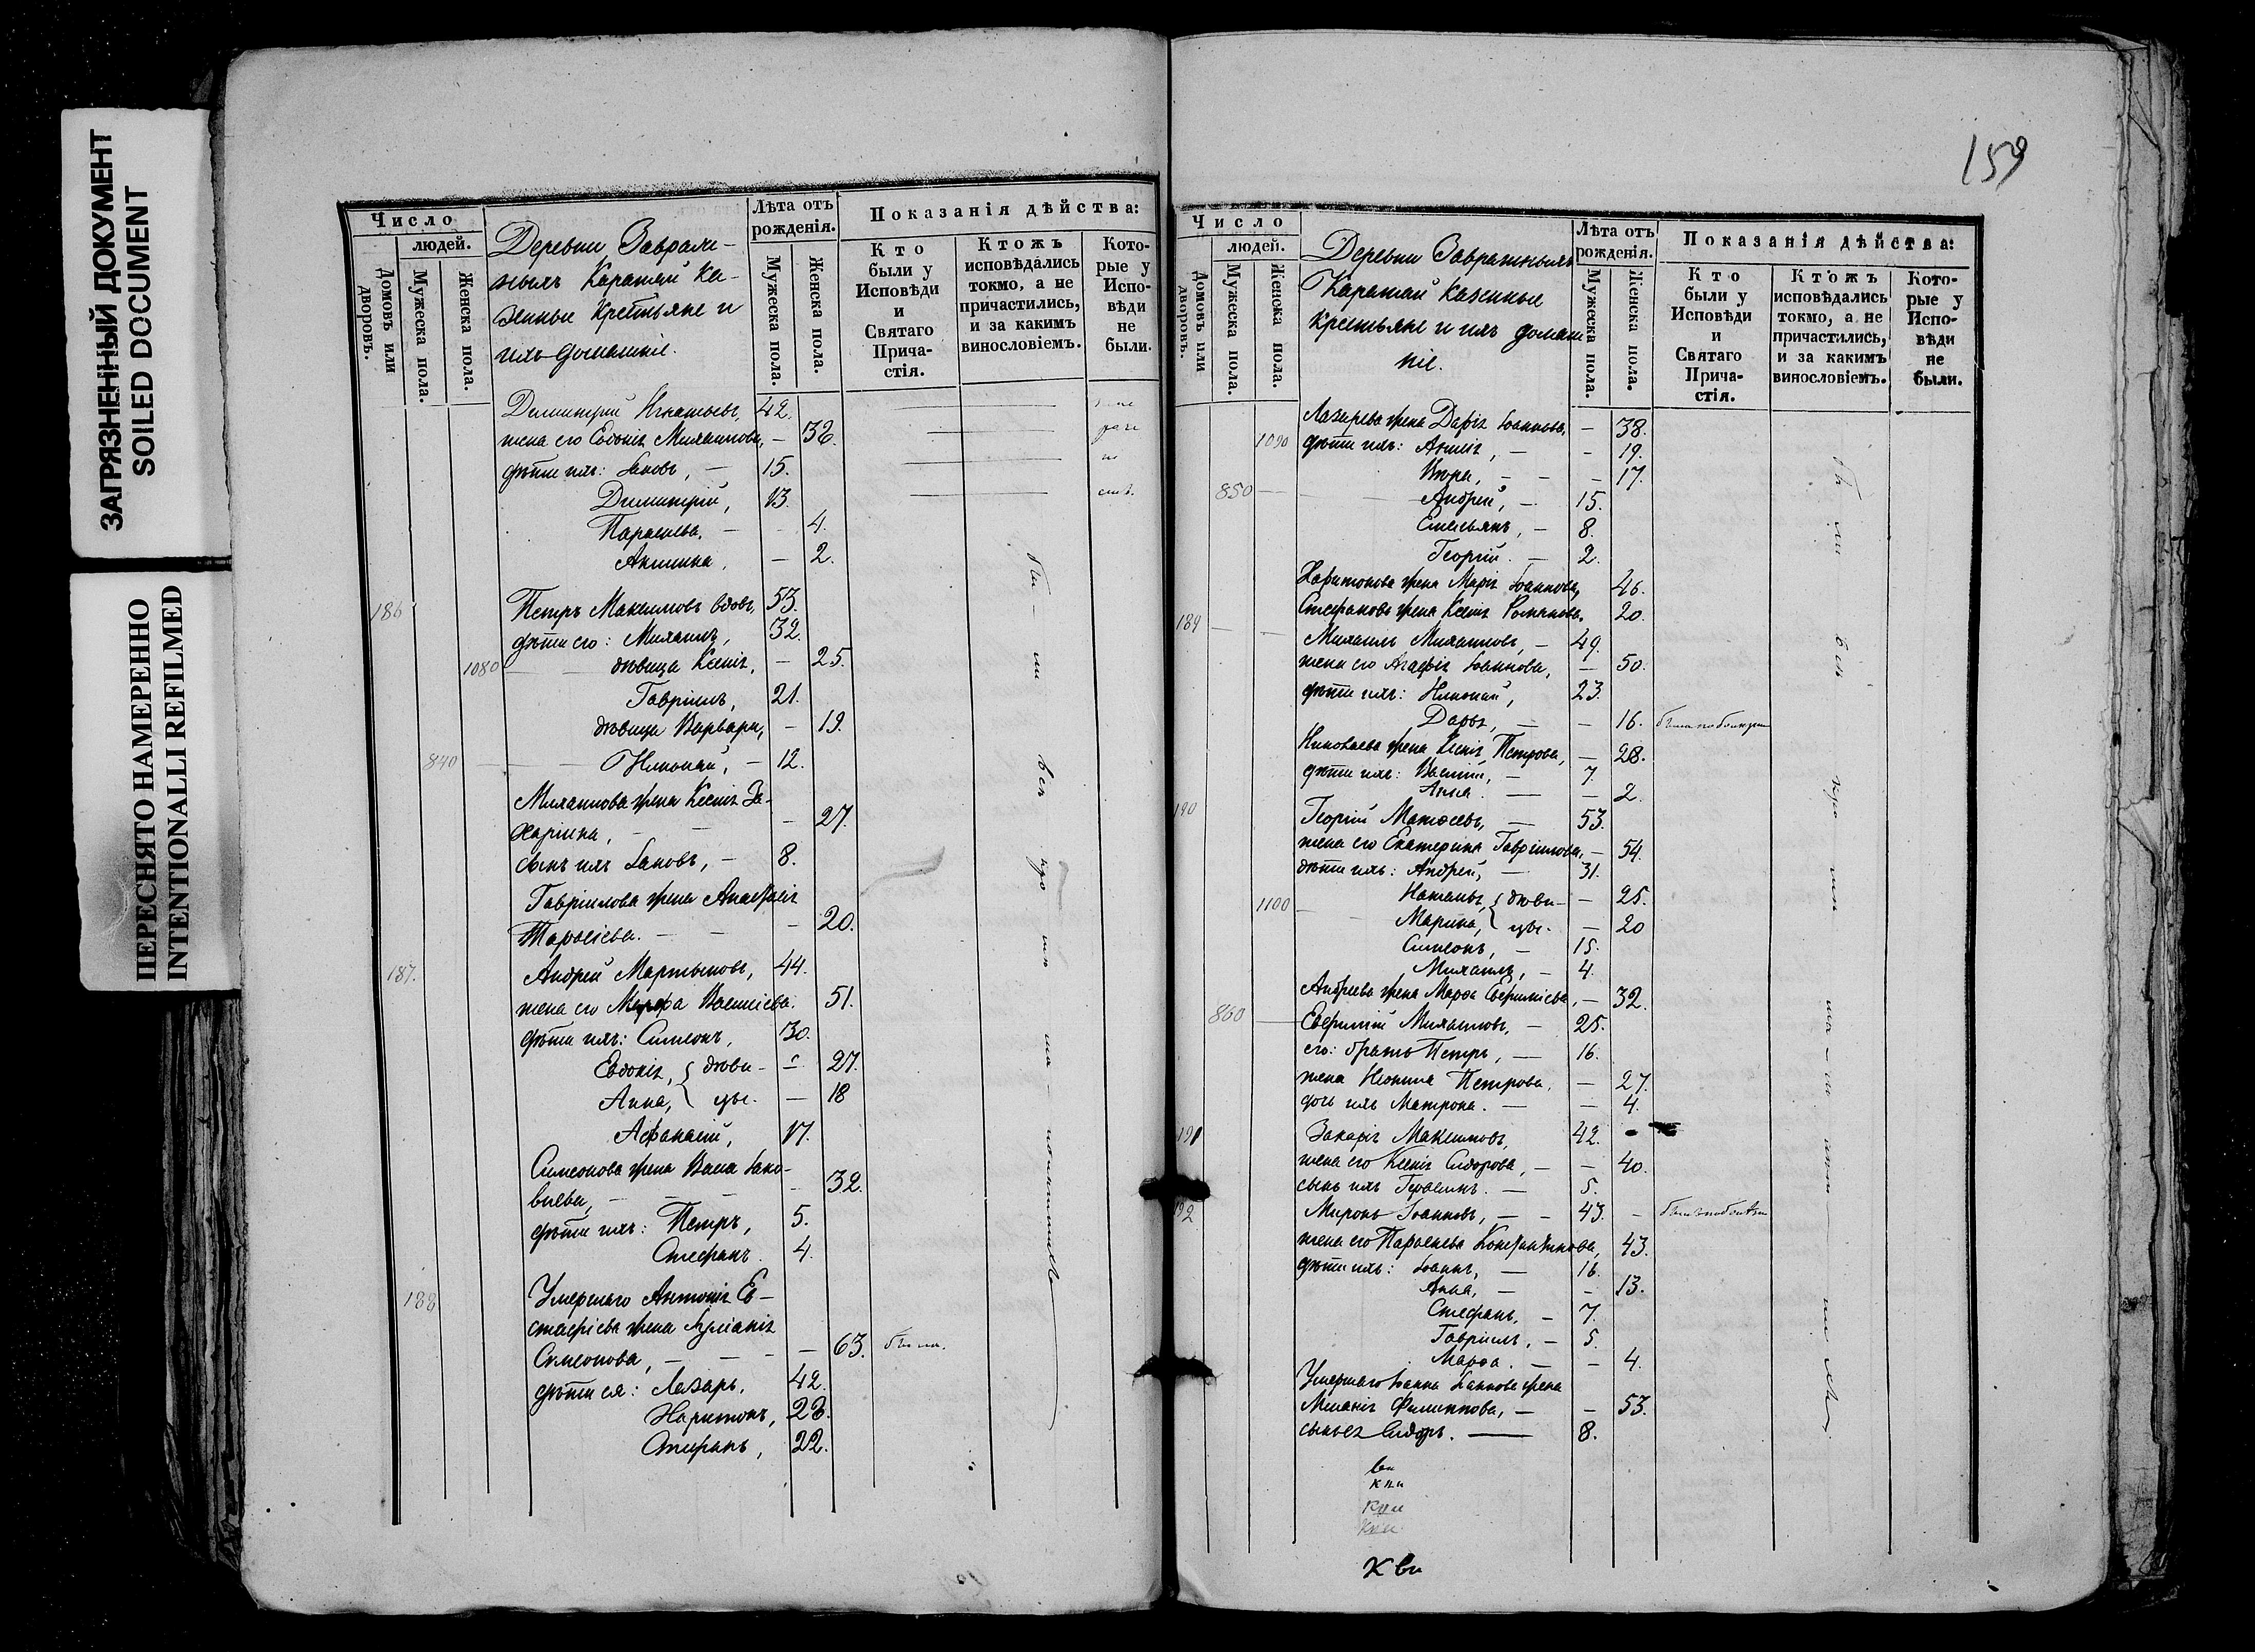 ЗАГРЯЗНЕННЫЙ ДОКУМЕНТ
SOILED DOCUMENT
ПЕРЕСНЯТО НАМЕРЕННО
INTENTIONALLI REFILMED
Число
людей.
Домовъ или дворовъ.
Мужеска пола.
Женска пола.
Деревни
Каратай Ка-
зенные Крестьяне и
ихъ домашніе.
Лѣта отъ рожденія.
Мужеска пола.
Женска пола.
Показанія дѣйства:
Кто были у Исповѣди и Святаго Прича-стія.
Ктожъ исповѣдались токмо, а не причастились, и за какимъ винословіемъ.
Кото-рые у Испо-вѣди не были.
Димитрій Игнатьевъ, 42.
жена его Евдокія Михаилова, — 36.
дѣти ихъ: Іаковъ, — 15.
Димитрій, 13.
Параскева, — 4.
Акилина, — 2.
186 Петръ Максимовъ вдовъ, 53.
дѣти его: Михаилъ, 32.
1080 дѣвица Ксенія, — 25.
Гавріилъ, 21.
дѣвица Варвара, — 19.
840 Николай, — 12.
Михаилова жена Ксенія За-
харіина, — 27.
сынъ ихъ Іаковъ, — 8.
Гавріилова жена Анастасія
Тарасіева. — 20.
187. Андрей Мартыновъ, 44.
жена его Марфа Василіева. 51.
дѣти ихъ: Симеонъ, 30.
Евдокія, дѣви- 27.
Анна, цы. — 18
Афанасій, 17.
Симеонова жена Васса Іако-
влева, — 32.
дѣти ихъ: Петръ, 5.
Стефанъ. 4.
188 Умершаго Антонія Ев-
стафіева жена Іуліанія
Симеонова, — 63. была.
дѣти ея: Лазарь, 42.
Харитонъ, 28.
Стефанъ, 22.
159
Число
людей.
Домовъ или дворовъ.
Мужеска пола.
Женска пола.
Деревни
Каратай Казенные
Крестьяне и ихъ домаш
ніе.
Лѣта отъ рожденія.
Мужеска пола.
Женска пола.
Показанія дѣйства:
Кто были у Исповѣди и Святаго Прича-стія.
Ктожъ исповѣдались токмо, а не причастились, и за какимъ винословіемъ.
Кото-рые у Испо-вѣди не были.
Лазарева жена Дарія Іоаннова, — 38.
1090 дѣти ихъ: — 19.
Вѣра, — 17.
850 Андрей, — 15.
Емельянъ, — 8.
Георгій. — 2.
Харитонова жена Марія Іоаннова, 46.
Стефанова жена Ксенія Романова. 20.
189 Михаилъ Михаиловъ, — 49.
жена его Агафія Іоаннова, — 50.
дѣти ихъ: Николай, 23.
Дарья, — 16.
Николаева жена Ксенія Петрова, — 28.
дѣти ихъ: Василій, — 7.
Анна. — 2.
190 Георгій Матѳеевъ, — 53.
жена его Екатерина Гавріилова, — 54.
дѣти ихъ: Андрей, — 31.
1100 Наталья, дѣви- — 25.
Марина, цы. — 20
Симеонъ, — 15.
Михаилъ, — 4.
Андреева жена Марѳа Евфиміева, — 32.
860 Евфимій Михаиловъ, — 25.
его: братъ Петръ, — 16.
жена Неонила Петрова, — 27.
дочь ихъ Матрона. — 4.
191 Захарія Максимовъ, 42.
жена его Ксенія Сидорова, — 40.
сынъ ихъ Герасимъ. — 5.
192 Миронъ Іоанновъ, — 43.
жена его Параскева Константинова, 43.
дѣти ихъ: Іоаннъ, — 16.
Анна, — 13.
Стефанъ, — 7.
Гавріилъ, — 5.
Марѳа. — 4.
Умершаго Іоанна Іаннова жена
Меланія Филиппова, — 53.
сынъ ея Сидоръ. — 8.